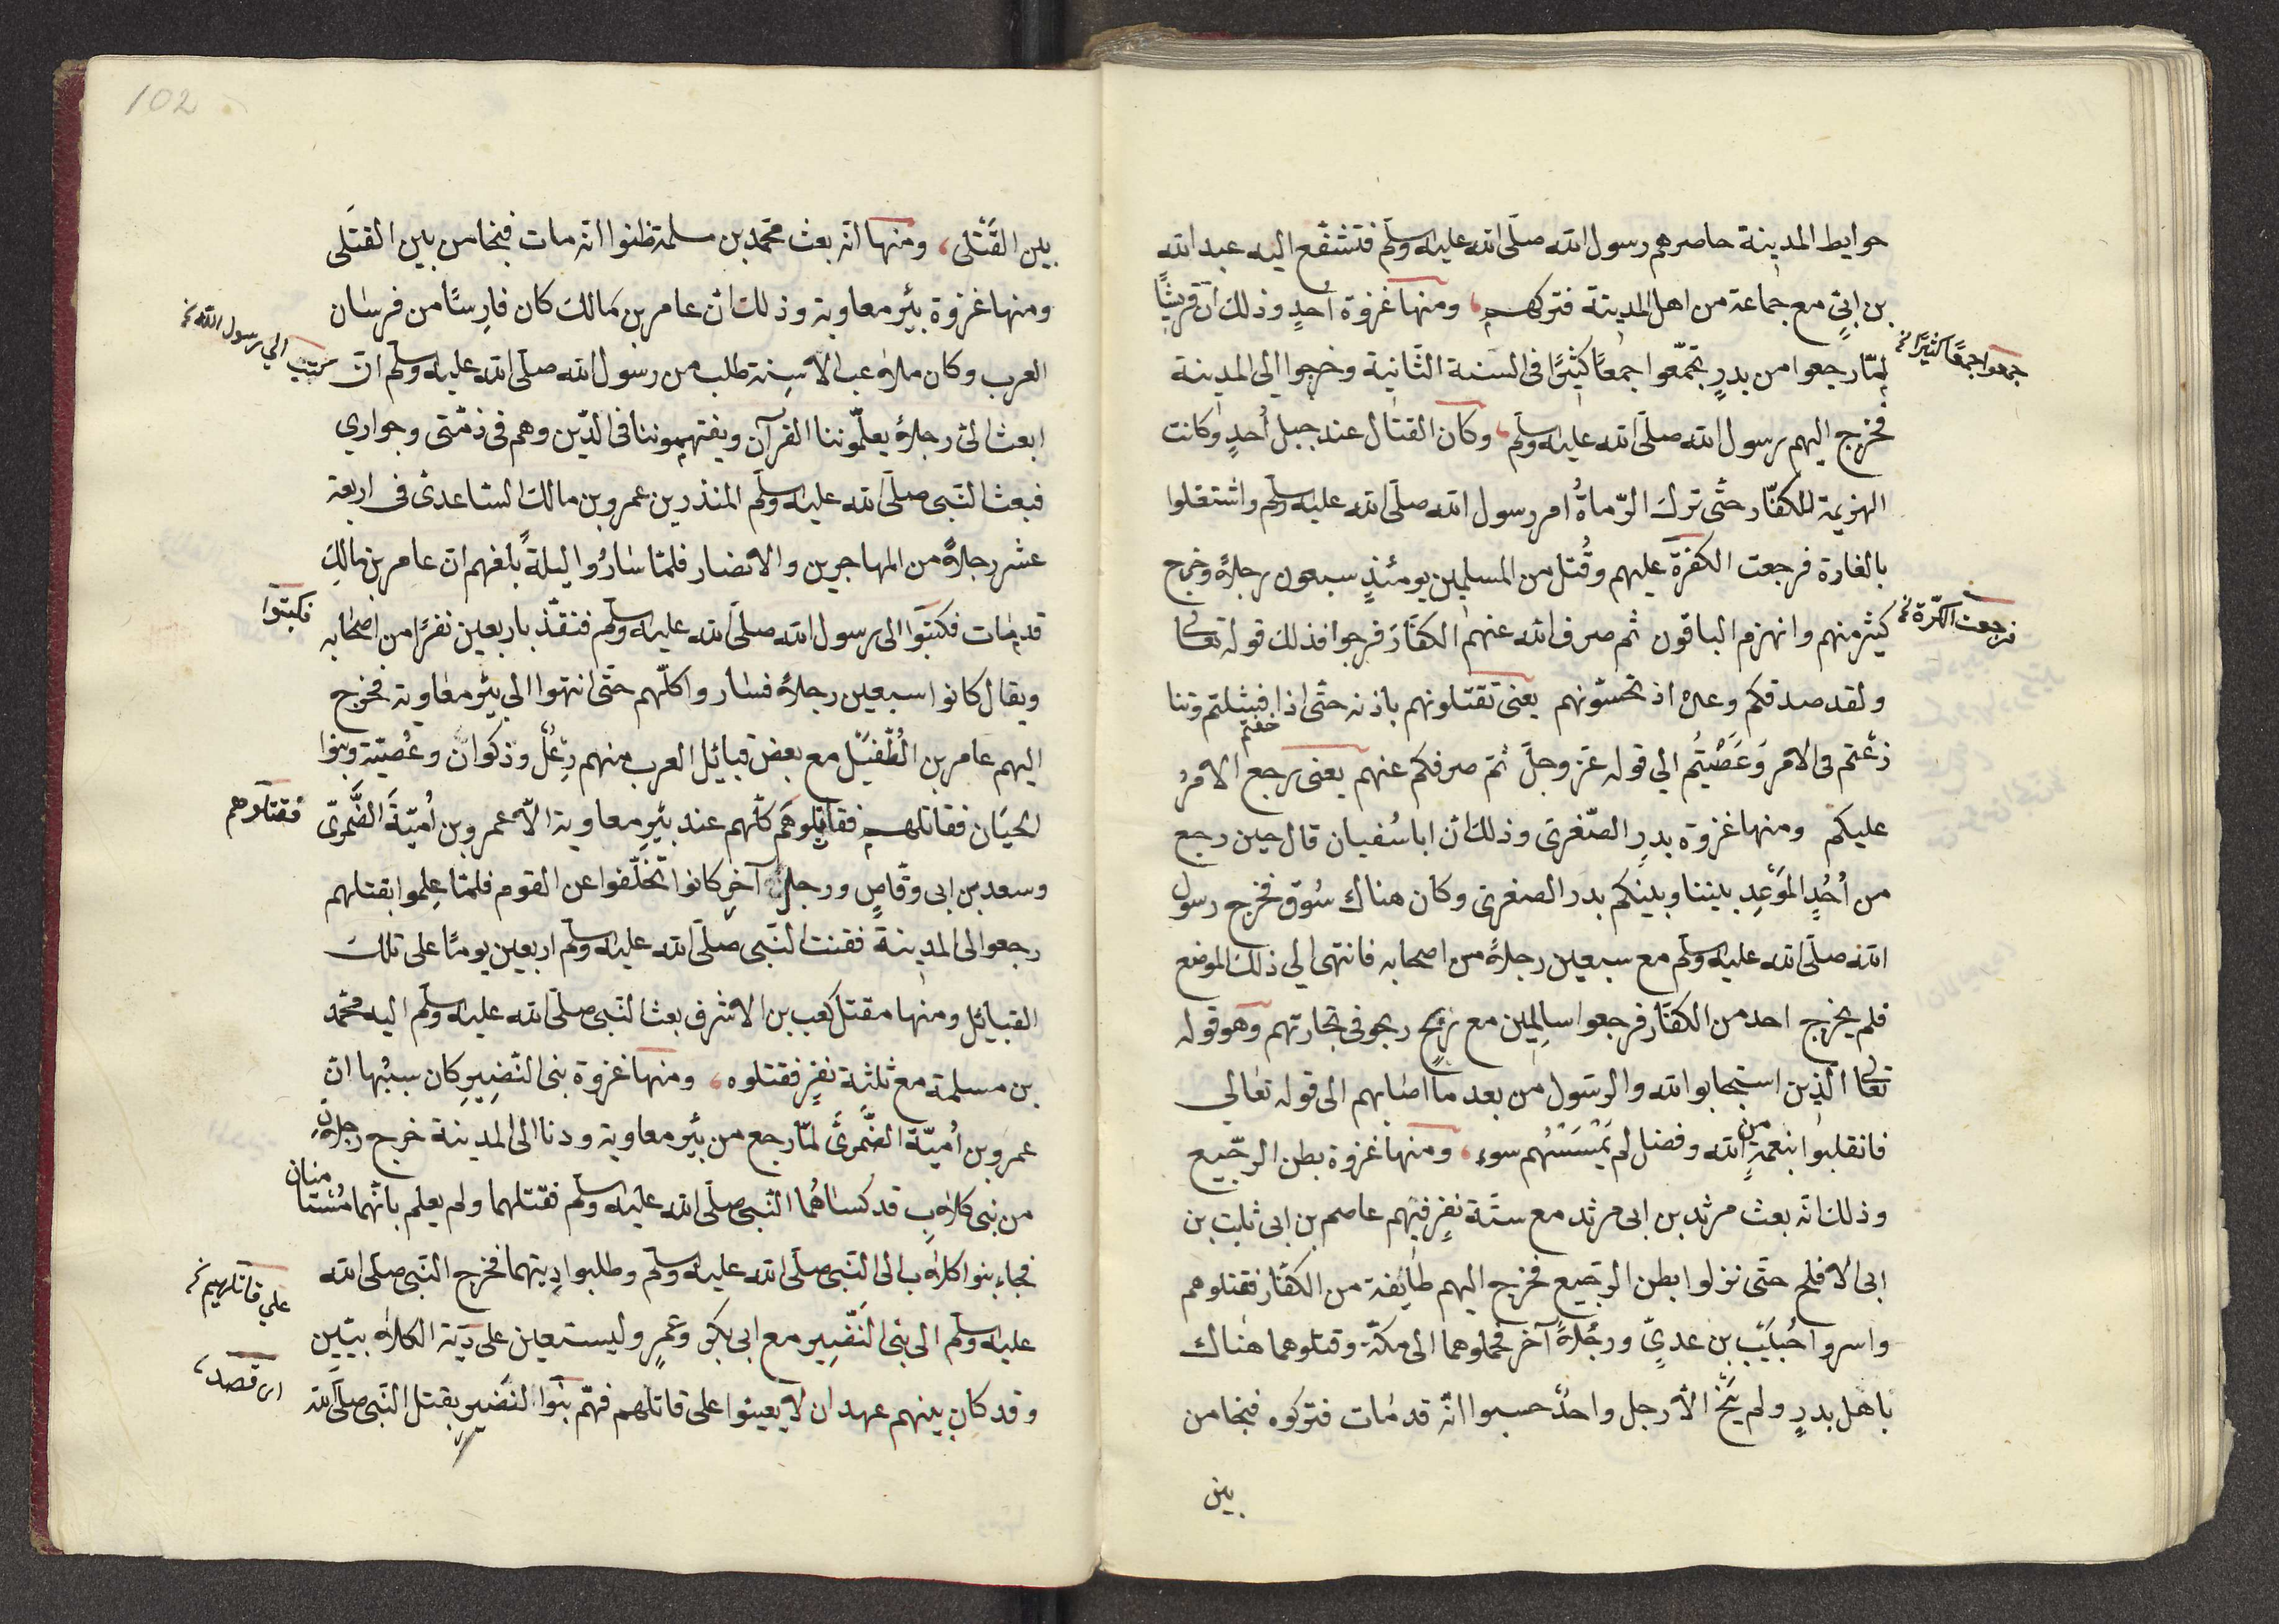 حوايط المدينة حاصرهم رسول الله صلى الله عليه وسلم فتشفع اليه عبد الله
بن ابيّ مع جماعة من اهل المدينة فتركهم، ومنها غزوة اُحدٍ وذلك انّ قريشًا
لمّا رجعوا من بدرٍ تجمّعوا جمعًا كثيرًا فى السنة الثانية وخرجوا الى المدينة
جمعوا جمعًا كثيرًا
فخرج اليهم رسول الله صلى الله عليه وسلم، وكان القتال عند جبل اُحدٍ وكانت
الهزيمة للكفّار حتّى ترك الرّماةُ امر رسول الله صلى الله عليه وسلم واشتغلوا
بالغارة فرجعت الكفرة عليهم وقُتل من المسلمين يومئذٍ سبعون رجلاً وخرج
فرجعت الكرّة
كثير منهم وانهزم الباقون ثم صرف الله عنهم الكفّار فرجوا فذلك قوله تعالى
ولقد صدقكم وعده اذ تحسّونهم يعنى تقتلونهم باذنه حتّى اذا فشلتم وتنا
خفتم
زعتم فى الامر وَعَصَيْتُم الي قوله عزّ وجلّ ثمّ صرفكم عنهم يعنى رجع الامرُ
عليكم ومنها غزوة بدرِ الصّغرى وذلك انّ ابا سُفيان قال حين رجع
من اُحُدٍ المَوْعِد بيننا وبينكم بدر الصغرى وكان هناك سُوق فخرج رسول
الله صلّى الله عليه وسلم مع سبعين رجلاً من اصحابه فانتهى الي ذلك الموضع
فلم يخرج احد من الكفّار فرجعوا سالِمين مع ربحٍ ربحو فى تجارتهم وهو قوله
تعالى الّذين استجابوا لله والرّسول من بعد ما اصابهم الى قوله تعالي
فانقلبوا بنعمةٍ من الله وفضل لم يَمْسَسْهُم سوء، ومنها غزوة بطن الرّجيع
وذلك انّه بعث مرثد بن ابى مرثد مع ستّة نفرٍ فيهم عاصم بن ابى ثابت بن
ابى الافلح حتّى نزلوا بطن الرجيع فخرج اليهم طايفة من الكفّار فقتلوهم
واسروا خُبَيْب بن عديّ ورجُلاً آخر فحملوهما الى مكّة وقتلوهما هناك
باهل بدرٍ ولم يَنْجُ الاّ رجل واحدٌ حسبوا انّه قد مات فتركوه فنجا من
بين
102
بين القَتْلى، ومنها انّه بعث محمّد بن مسلمة ظنوا انّه مات فنجا من بين القتلى
ومنها غزوة بئر معاوية وذلك انّ عامر بن مالك كان فارِسًا من فرسان
العرب وكان ملاعب الاسِنة طلب من رسول الله صلّى الله عليه وسلم ان
كتب الي رسول الله
ابعث الىّ رجلاً يعلّموننا القرآن ويفهموننا فى الدّين وهم فى ذمّتى وجوارى
فبعث النّبى صلّى الله عليه وسلّم المنذر بن عمرو بن مالك الساعدىّ فى اربعة
عشر رجلاً من المهاجرين والانصار فلمّا سارُوا ليلةً بلغهم انّ عامر بن مالكِ
قد مات فكتبَوا الى رسول الله صلّى الله عليه وسلّم فنفّذ باربعين نفرًا من اصحابه
فكبتوا
ويقال كانوا سبعين رجلاً فساروا كلّهم حتّى انتهوا الي بئر معاوية فخرج
اليهم عامر بن الطُّفَيْل مع بعض قبائل العرب منهم رِعْلٌ وذكوان وعُصيّة وبنوا
لحيَان فقاتلهم فقاتلوهم كلّهم عند بئرِ معاوية الاّ عمرو بن اُميّةَ الضَّمْرىّ
فقتلوهم
وسعد بن ابى وقّاصٍ ورجلٌ آخر كانوا تخلّفوا عن القوم فلمّا علِموا بقتلهم
رجعوا الى المدينة فقنت النّبى صلّى الله عليه وسلّم اربعين يومًا على تلك
القبائل ومنها مقتل كعب بن الاشرف بعث النّبى صلّى الله عليه وسلّم اليه محمّد
بن مسلمة مع ثلثة نفرٍ فقتلوه، ومنها غزوة بنى النّضِيرِ كان سببُها انّ
عمرو بن اُميّة الضّمرىّ لمّا رجع من بئر معاوية ودنا الى المدينة خرج رجلانِ
من بنى كلابٍ قد كساهُما النّبى صلّى الله عليه وسلّم فقتلهما ولم يعلم بانّهما مُستامنان
فجاء بنوا كلاب الى النّبى صلّى الله عليه وسلّم وطلبوا دِيتهما فخرج النّبى صلّى الله
عليه وسلّم الى بنى النَّضِير مع ابى بكر وعمرٍ وليستعين على دية الكلابيّين
علي قاتلهم
وقد كان بينهم عهد ان لا يعينوا على قاتلهم فهمّ بنوا النضيرِ بقتل النّبى صلّى الله
اى قصد